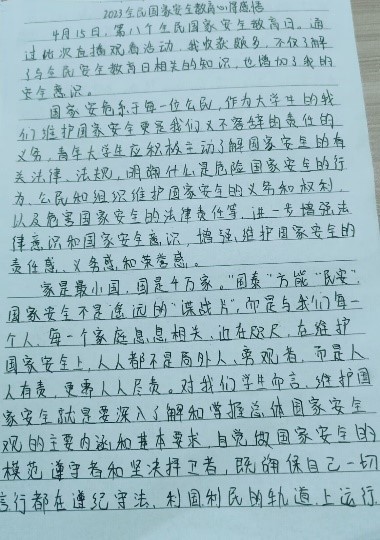 2023全民国家安全教育心得感悟
4月15日,第八个全民国家安全教育日。通
过此次直播观看活动,我收获颇多,不仅了解
了与全民安全教育日相关的知识,也增加了我的
安全意识。
国家安危系于每一位公民,作为大学生的我
们维护国家安全更是我们义不容辞的责任的
义务,青年大学生应积极主动了解国家安全的有
关法律、法规,明确什么是危险国家安全的行
为、公民和组织维护国家安全的义务和权利
以及危害国家安全的法律责任等,进一步增强法
律意识和国家安全意识,增强维护国家安全的
责任感、义务感和荣誉感。
家是最小国,国是千万家。“国泰”方能“民安”,
国家安全不是遥远的“谍战片”,而是与我们每一
个人、每一个家庭息息相关,近在咫尺,在维护
国家安全上,人人都不是局外人、旁观者,而是人
人有责,更需人人尽责。对我们学生而言,维护国
家安全就是要深入了解和掌握总体国家安全
观的主要内涵和基本要求,自觉做国家安全的
模范遵守者和坚决捍卫者,既确保自己一切
言行都在遵纪守法、利国利民的轨道上运行,